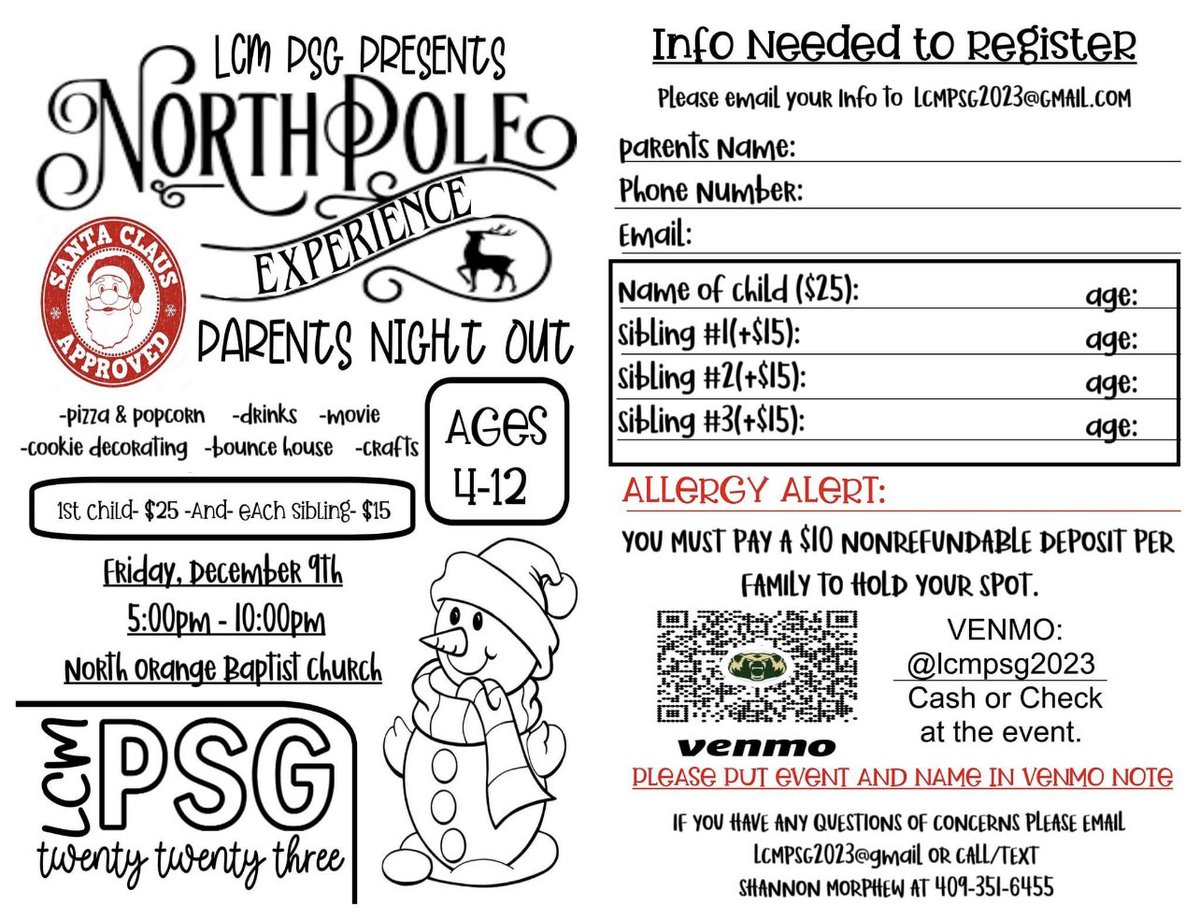 LCM PSG PRESENTS
NORTH POLE
EXPERIENCE
SANTA CLAUS
APPROVED
PARENTS NIGHT OUT
-pizza & popcorn -drinks -movie
-cookie decorating -bounce house -crafts
AGES
4-12
1st child- $25 -And- each sibling- $15
Friday, December 9th
5:00pm - 10:00pm
North Orange Baptist Church
LCM
PSG
twenty twenty three
Info Needed to Register
Please email your info to LCMPSG2023@GMAIL.COM
Parents Name:
Phone Number:
Email:
Name of child ($25): age:
sibling #1(+$15): age:
sibling #2(+$15): age:
sibling #3(+$15): age:
ALLERGY ALERT:
YOU MUST PAY A $10 NONREFUNDABLE DEPOSIT PER
FAMILY TO HOLD YOUR SPOT.
VENMO:
@lcmpsg2023
Cash or Check
at the event.
venmo
PLEASE PUT EVENT AND NAME IN VENMO NOTE
IF YOU HAVE ANY QUESTIONS OF CONCERNS PLEASE EMAIL
LCMPSG2023@gmail OR CALL/TEXT
SHANNON MORPHEW AT 409-351-6455